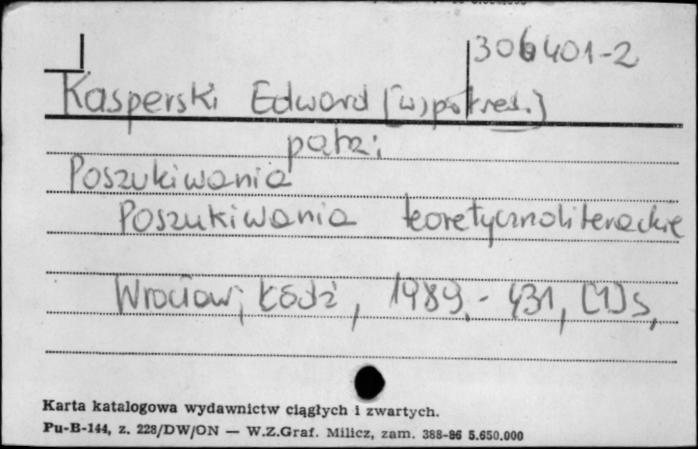 306401-2
Kasperski Edward [współred.]
patrz:
Poszukiwania
Poszukiwania teoretycznoliterackie
Wrocław; Łódź, 1989.- 431, [1]s,
Karta katalogowa wydawnictw ciągłych i zwartych.
Pu-B-144, z. 228/DW/ON — W.Z.Graf. Milicz, zam. 388-86 5.650.000